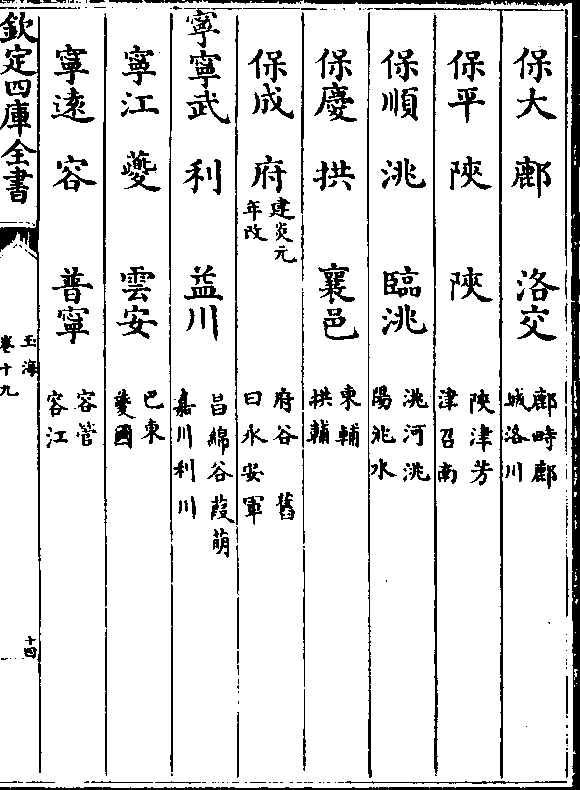 保大　鄜　洛交　鄜畤鄜城洛川
保平　陜　陜　陜津芳津召南
保順　洮　臨洮　洮河洮陽洮水
保慶　拱　襄邑　東輔拱輔
保成　府建炎元年改　府谷舊曰永安軍
寧寧武　利　益川　昌綿谷葭萌嘉川利川
寧江　夔　雲安　巴東夔國
寧遠　容　普寧　容管容江
欽定四庫全書
玉海
卷十九
十四